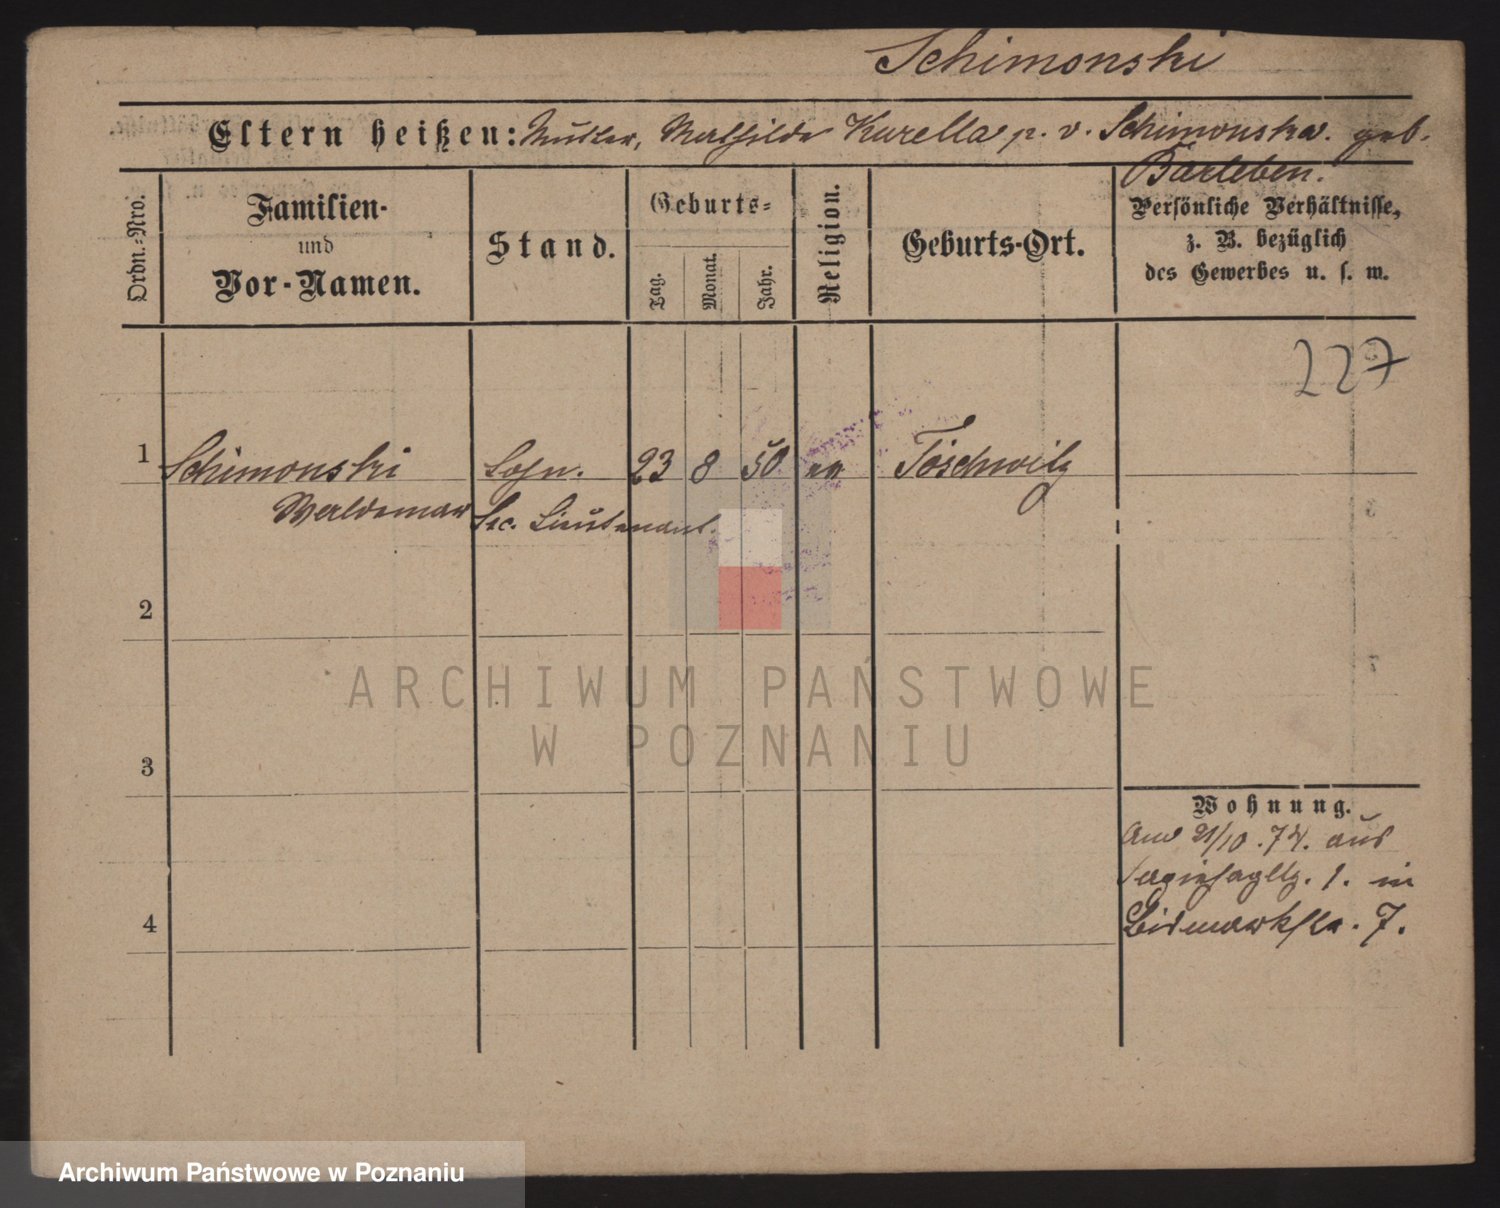 Schimonski
Eltern heißen: Mutter, Mathilde Kurella p. v. Schimonska. geb.
Barleben.
Ordn.-Nro.
Familien-
und
Vor-Namen.
Stand.
Geburts-
Tag.
Monat.
Jahr.
Religion.
Geburts-Ort.
Persönliche Verhältnisse,
z. B. bezüglich
des Gewerbes u. s. w.
227
1 Schimonski Sohn. 23 8 50 ev Töschwitz
Waldemar Sec. Lieutenant.
2
3
4
Wohnung.
21/10. 74. aus
1. in
Bismarckstr. 7.
ARCHIWUM PAŃSTWOWE
W POZNANIU
Archiwum Państwowe w Poznaniu